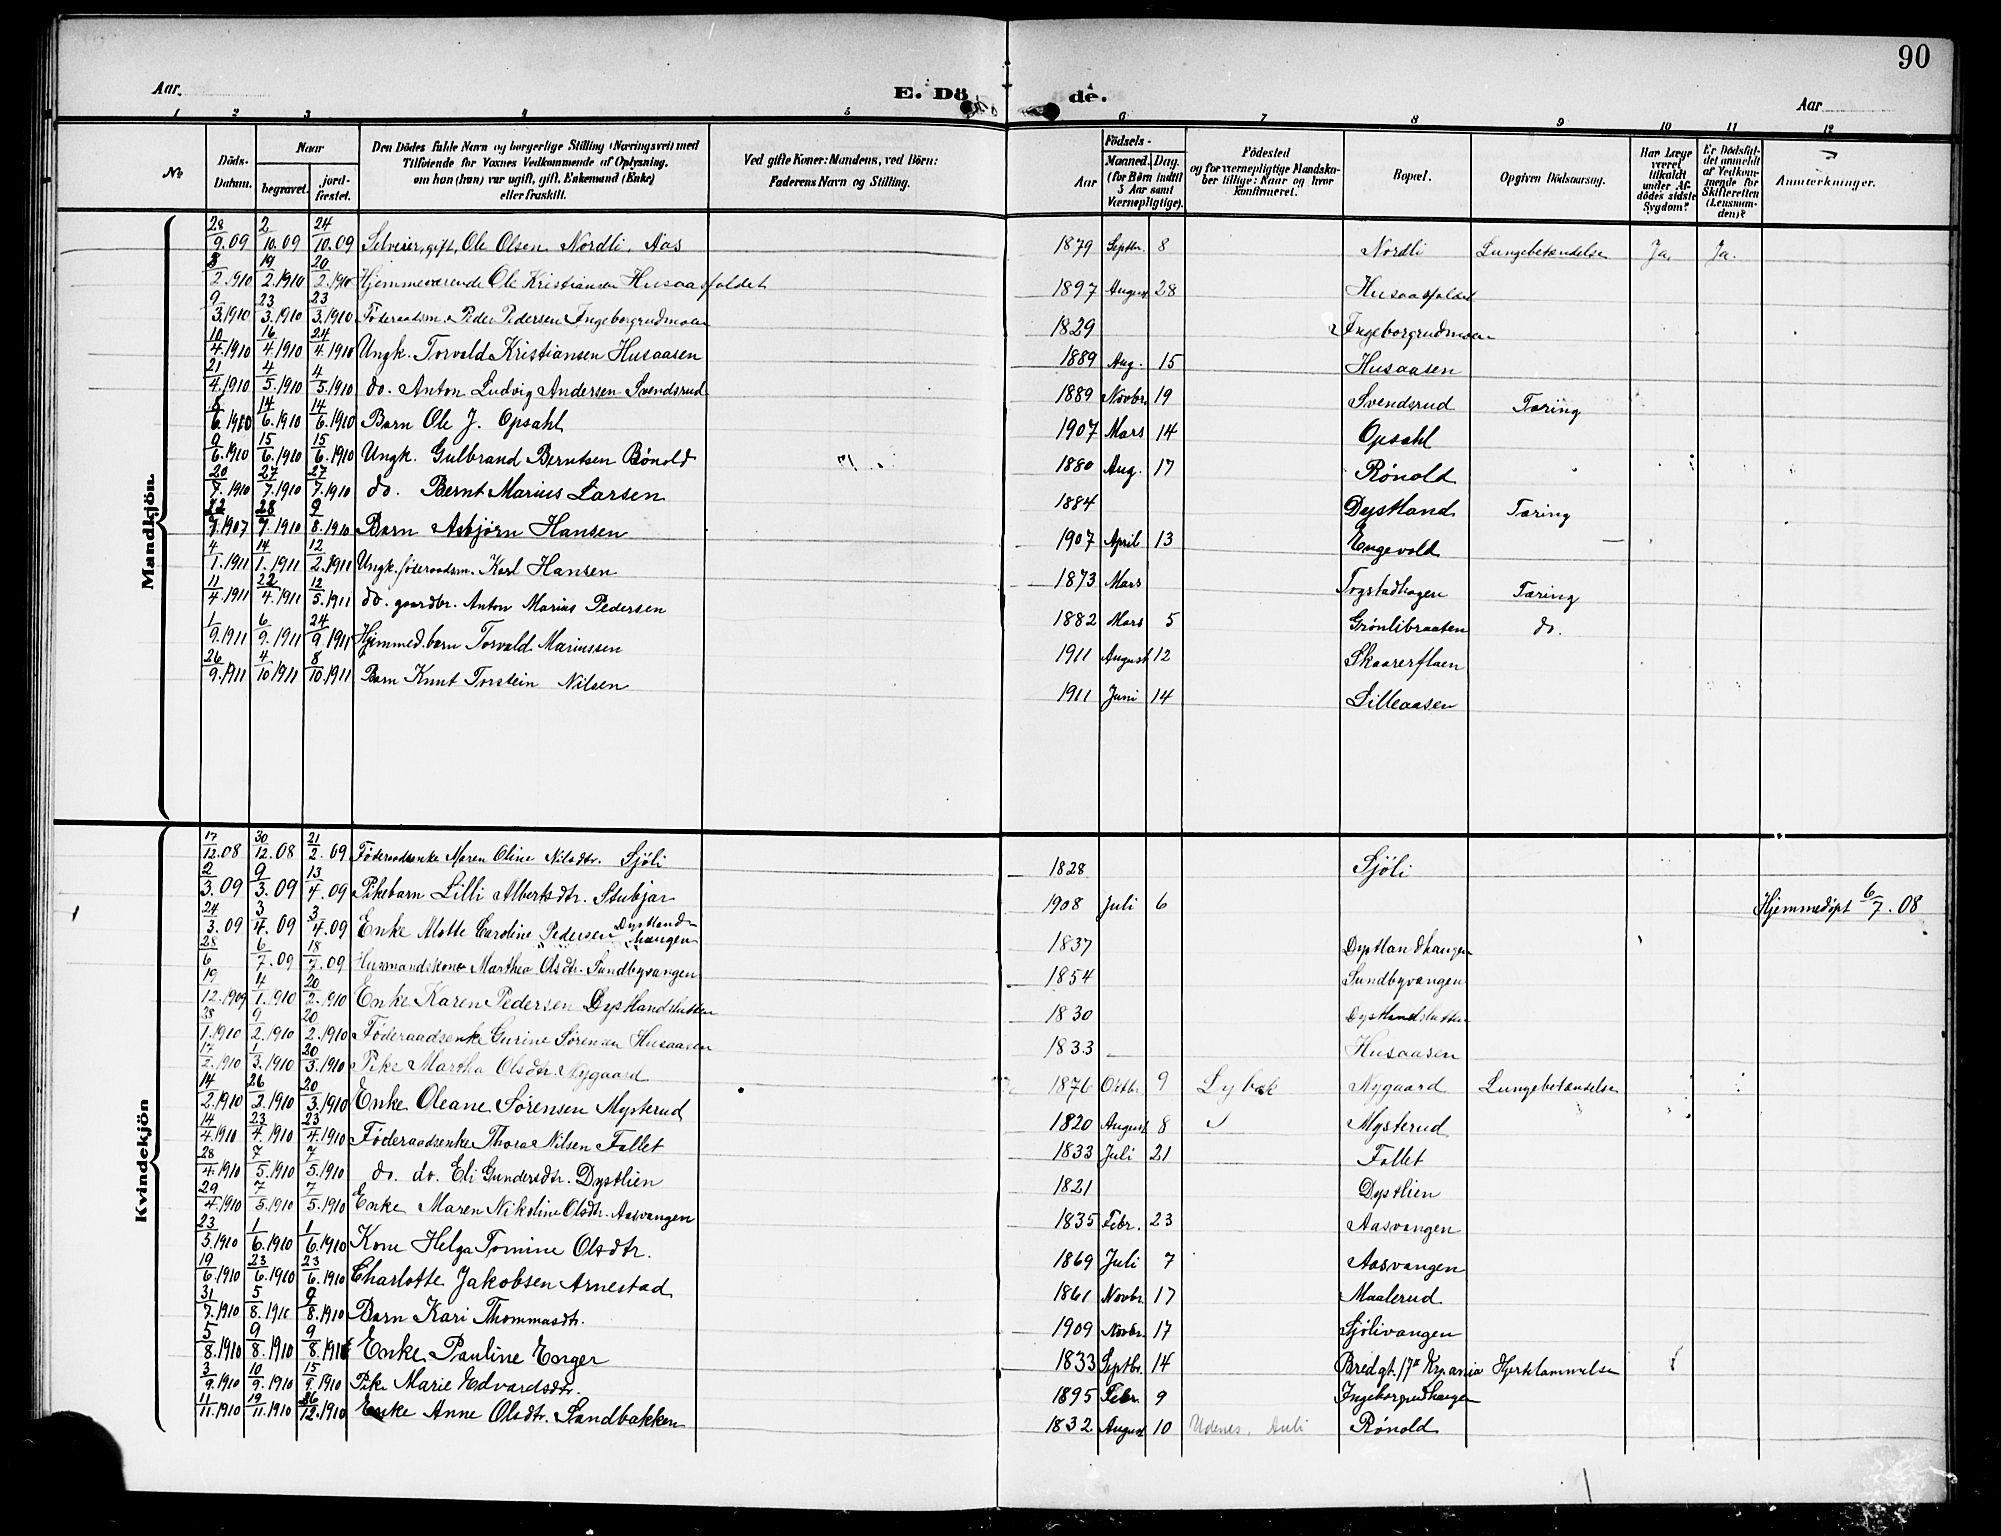 90
Aar. E. Döde. Aar
1 2 3 4 5 6 7 8 9 10 11 12
No
Döds-Datum.
Naar
begravet.
jord-fæstet.
Den Dödes fulde Navn og borgerlige Stilling (Næringsvei) med Tilföiende for Voxnes Vedkommende af Oplysning, om han (hun) var ugift, gift, Enkemand (Enke) eller fraskilt.
Ved gifte Koner: Mandens, ved Börn: Faderens Navn og Stilling.
Födsels-
Aar
Maaned. Dag.
(for Börn indtil 3 Aar samt Værnepligtige).
Födested og for værnepligtige Mandskaber tillige: Naar og hvor konfirmeret.
Bopæl.
Opgiven Dödsaarsag.
Har Læge været tilkaldt under Afdödes sidste Sygdom?
Er Dödsfaldet anmeldt af Vedkommende for Skifteretten (Lensmanden)?
Anmærkninger.
Mandkjön.
28/9.09 2/10.09 24/10.09 Selveier, gift, Ole Olsen Nordli, Aas 1879 Septbr. 8 Nordli Lungebetændelse Ja. Ja.
8/2.1910 19/2.1910 20/2.1910 Hjemmeværende Ole Kristiansen Husaasfaldet 1897 August 28 Husaasfaldet
9/3.1910 23/3.1910 23/3.1910 Föderaadsm. Peder Pedersen Ingeborgrudmoen 1829 Ingeborgrudmoen
10/4.1910 16/4.1910 24/4.1910 Ungk. Torvald Kristiansen Husaasen 1889 Aug. 15 Husaasen
21/4.1910 4/5.1910 4/5.1910 do. Anton Ludvig Andersen Svendsrud 1889 Novbr. 19 Svendsrud Tæring
8/6.1910 14/6.1910 14/6.1910 Barn Ole J. Opsahl 1907 Mars 14 Opsahl
9/6.1910 15/6.1910 15/6.1910 Ungk. Gulbrand Berntsen Rönold 1880 Aug. 17 Rönold
20/7.1910 27/7.1910 27/7.1910 do. Bernt Marius Larsen 1884 Dystland Tæring
22/7.1907 28/7.1910 9/8.1910 Barn Asbjörn Hansen 1907 April 13 Engevold
4/1.1911 14/1.1911 12/2.1911 Ungk. föderaadsm. Karl Hansen 1873 Mars Togstadhagen Tæring
11/4.1911 22/4.1911 12/5.1911 do. gaardbr. Anton Marius Pedersen 1882 Mars 5 Grönlibraaten do.
1/9.1911 6/9.1911 24/9.1911 Hjemmed. barn Torvald Mariussen 1911 August 12 Skaarerflaen
26/9.1911 4/10.1911 8/10.1911 Barn Knut Torstein Nilsen 1911 Juni 14 Lilleaasen
Kvindekjön
17/12.08 30/12.08 21/2.09 Föderaadsenke Maren Oline Nilsdtr. Sjöli 1828 Sjöli
2/3.09 9/3.09 13/4.09 Pikebarn Lilli Albertsdtr. Stubjar 1908 Juli 6 Hjemmedöpt 6/7.08
24/3.09 3/4.09 3/4.09 Enke Alotte Caroline Pedersen Dystlandhaugen 1837 Dystlandhaugen
28/6 6/7.09 18/7.09 Husmandskone Marthea Olsdtr. Sundbyvangen 1854 Sundbyvangen
19/12.1909 4/1.1910 20/2.1910 Enke Karen Pedersen Dystlandshutten 1830 Dystlandshutten
28/1.1910 9/2.1910 20/2.1910 Föderaadsenke Gurine Sörensen Husaasen 1833 — Husaasen
17/2.1910 1/3.1910 20/3.1910 Pike Martha Olsdtr. Nygaard 1876 Oktbr. 9 Lybæk Nygaard Lungebetændelse
14/2.1910 26/2.1910 20/3.1910 Enke Oleane Sörensen Mysterud 1820 August 8 Mysterud
14/4.1910 23/4.1910 23/4.1910 Föderaadsenke Thora Nilsen Fallet 1833 Juli 21 Fallet
28/4.1910 7/5.1910 7/5.1910 do. do. Eli Gundersdtr. Dystlien 1821 Dystlien
29/4.1910 7/5.1910 7/5.1910 Enke Maren Nikoline Olsdtr. Aasvangen 1835 Febr. 23 Aasvangen
23/5.1910 1/6.1910 1/6.1910 Kone Helga Tomine Olsdtr. 1869 Juli 7 Aasvangen
19/6.1910 23/6.1910 23/6.1910 Charlotte Jakobsen Arnestad 1861 Novbr. 17 Maalerud
31/7.1910 5/8.1910 9/8.1910 Barn Kari Thommasdtr. 1909 Novbr. 17 Sjölivangen
5/8.1910 9/8.1910 9/8.1910 Enke Pauline Enger 1833 Septbr. 14 Bredgt. 17 Krania Hjertelammelse
3/9.1910 10/9.1910 15/9.1910 Pike Marie Edvardsdtr. 1895 Febr. 9 Ingeborgrudhaugen
11/11.1910 19/11.1910 26/12.1910 Enke Anne Olsdtr. Sandbakken 1832. August 10 Udenes, Auli Rönold